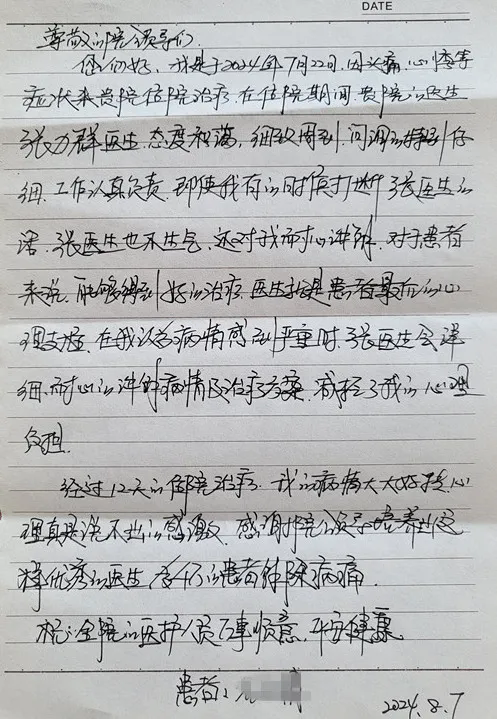 DATE
尊敬的院领导们:
您们好,我是于2024年7月22日,因头痛、心悸等
症状来贵院住院治疗,在住院期间,贵院的医生
张力群医生,态度和蔼,细致周到,问询的特别仔
细,工作认真负责,即使我有的时候打断张医生的
话,张医生也不生气,还对我耐心讲解,对于患者
来说,能够得到好的治疗,医生就是患者最大的心
理支撑,在我认为病情感到严重时,张医生会详
细、耐心的讲解病情及治疗方案,减轻了我的心理
负担。
经过12天的住院治疗,我的病情大大好转,心
理真是说不出的感激,感谢投院领导培养出这
样优秀的医生,为们的患者解除病痛。
祝:全院的医护人员万事顺意,平安健康
患者:
2024.8.7